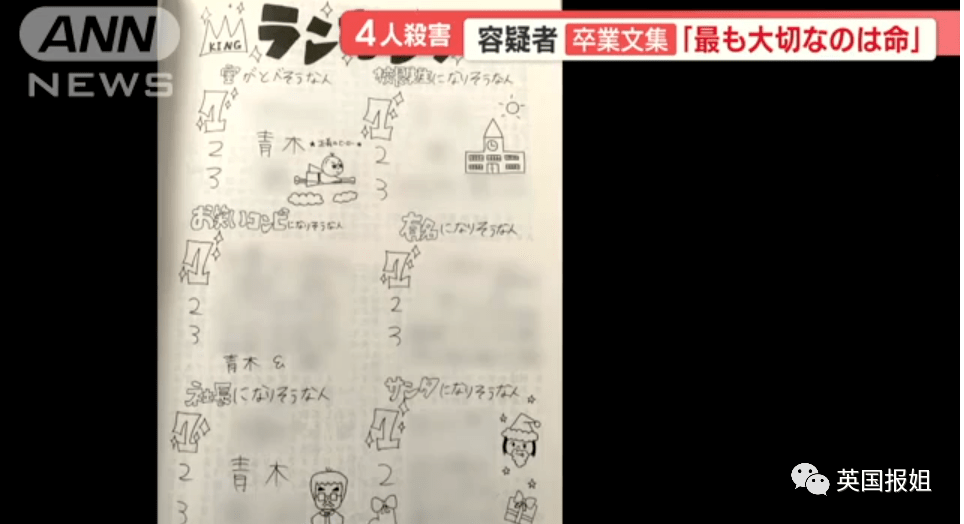 ANN
NEWS
4人殺害
容疑者 卒業文集「最も大切なのは命」
KING
ラン
空がとべそうな人
1
2 青木
3
になりそうな人
1
2
3
お笑いコンビになりそうな人
1
2
3
青木 &
有名になりそうな人
1
2
3
社長になりそうな人
1
2 青木
3
サンタになりそうな人
1
2
英国报姐